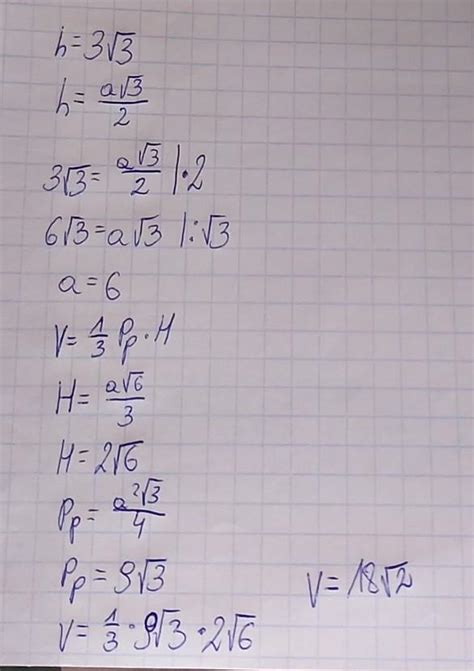 h = 3√3
h = a√3/2
3√3 = a√3/2 |·2
6√3 = a√3 |:√3
a = 6
V = 1/3 Pp · H
H = a√6/3
H = 2√6
Pp = a²√3/4
Pp = 9√3
V = 1/3 · 9√3 · 2√6
V = 18√2